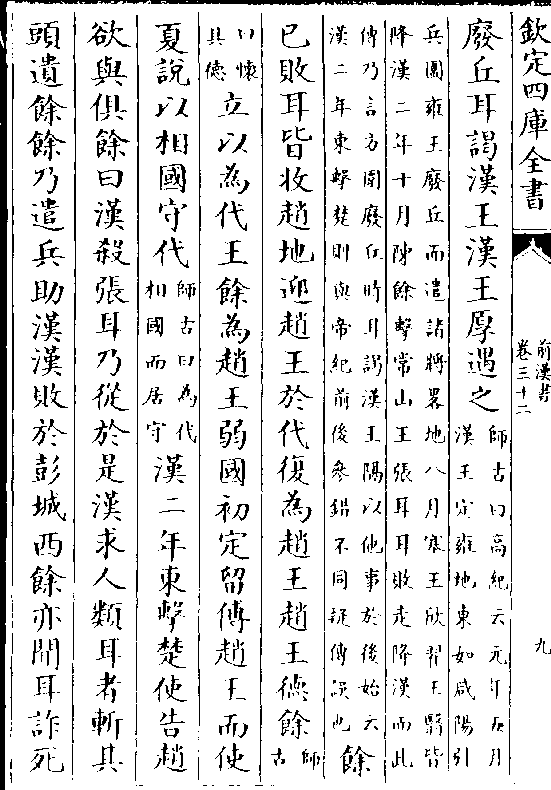 欽定四庫全書
前漢書
卷三十二
九
廢丘耳謁漢王漢王厚遇之師古曰高紀云元年五月漢王定雍地東如咸陽引
兵圍雍王廢丘而遣諸將畧地八月塞王欣翟王翳皆降漢二年十月陳餘擊常山王張耳耳敗走降漢而此
傳乃言方圍廢丘時耳謁漢王隔以他事於後始云漢二年東擊楚則與帝紀前後參錯不同疑傳誤也餘
已敗耳皆收趙地迎趙王於代復為趙王趙王德餘師古
曰懷其德立以為代王餘為趙王弱國初定留傅趙王而使
夏說以相國守代師古曰為代相國而居守漢二年東擊楚使告趙
欲與俱餘曰漢殺張耳乃從於是漢求人類耳者斬其
頭遺餘餘乃遣兵助漢漢敗於彭城西餘亦聞耳詐死